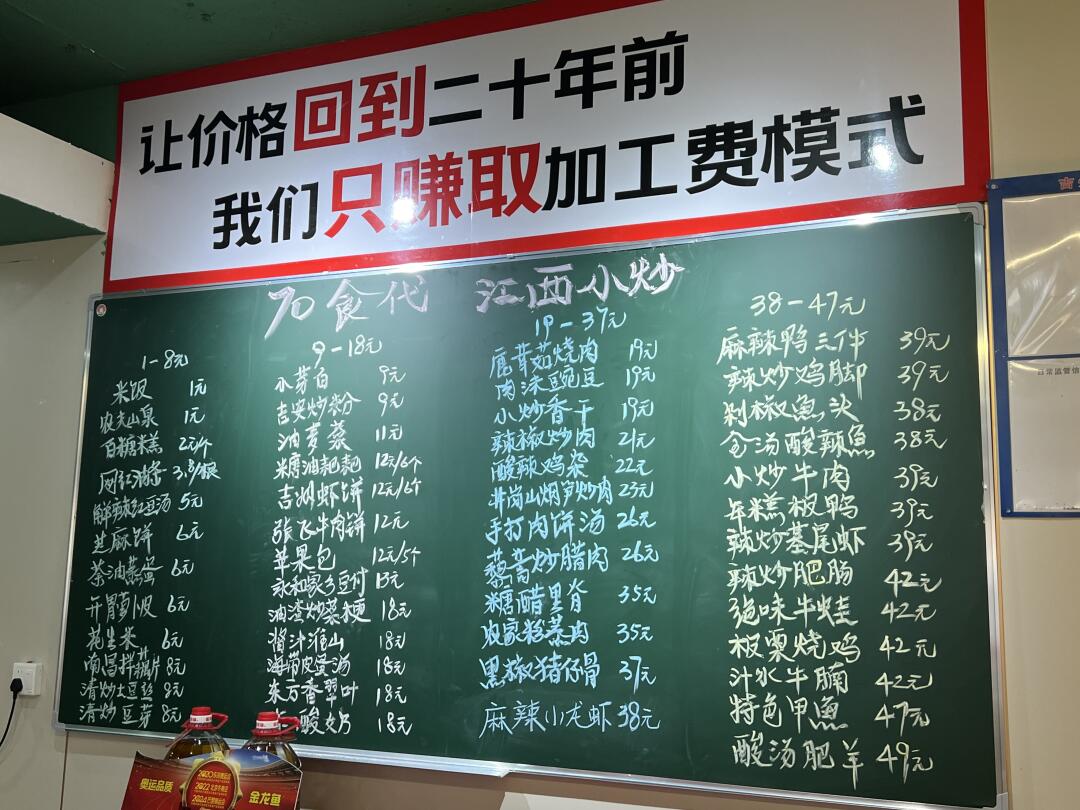 让价格回到二十年前
我们只赚取加工费模式
70食代 江西小炒
1-8元
米饭 1元
农夫山泉 1元
白糖米糕 2元/个
网红油条 3.8/根
解辣红豆汤 5元
芝麻饼 6元
茶油蒸蛋 6元
开胃萝卜皮 6元
花生米 6元
南昌拌藕片 8元
清炒土豆丝 8元
清炒豆芽 8元
9-18元
小芽白 9元
吉安炒米粉 9元
油麦菜 11元
糖油粑粑 12元/6个
吉州虾饼 12元/6个
张飞牛肉饼 12元
苹果包 12元/5个
永和家乡豆付 13元
油渣炒菜梗 18元
酱汁淮山 18元
海带皮蛋汤 18元
朱云香翠叶 18元
酸奶 18元
19-37元
鹿茸菇烧肉 19元
肉沫豌豆 19元
小炒香干 19元
辣椒炒肉 21元
酸辣鸡杂 22元
井岗山烟笋炒肉 23元
手打肉饼汤 26元
藜蒿炒腊肉 26元
糖醋里脊 35元
农家粉蒸肉 35元
黑椒猪仔骨 37元
麻辣小龙虾 38元
38-47元
麻辣鸭三件 39元
辣炒鸡脚 39元
剁椒鱼头 38元
金汤酸辣鱼 38元
小炒牛肉 39元
年糕板鸭 39元
辣炒基尾虾 39元
辣炒肥肠 42元
绝味牛蛙 42元
板栗烧鸡 42元
汁水牛腩 42元
特色甲鱼 47元
酸汤肥羊 49元
日常监管信
奥运品质
金龙鱼